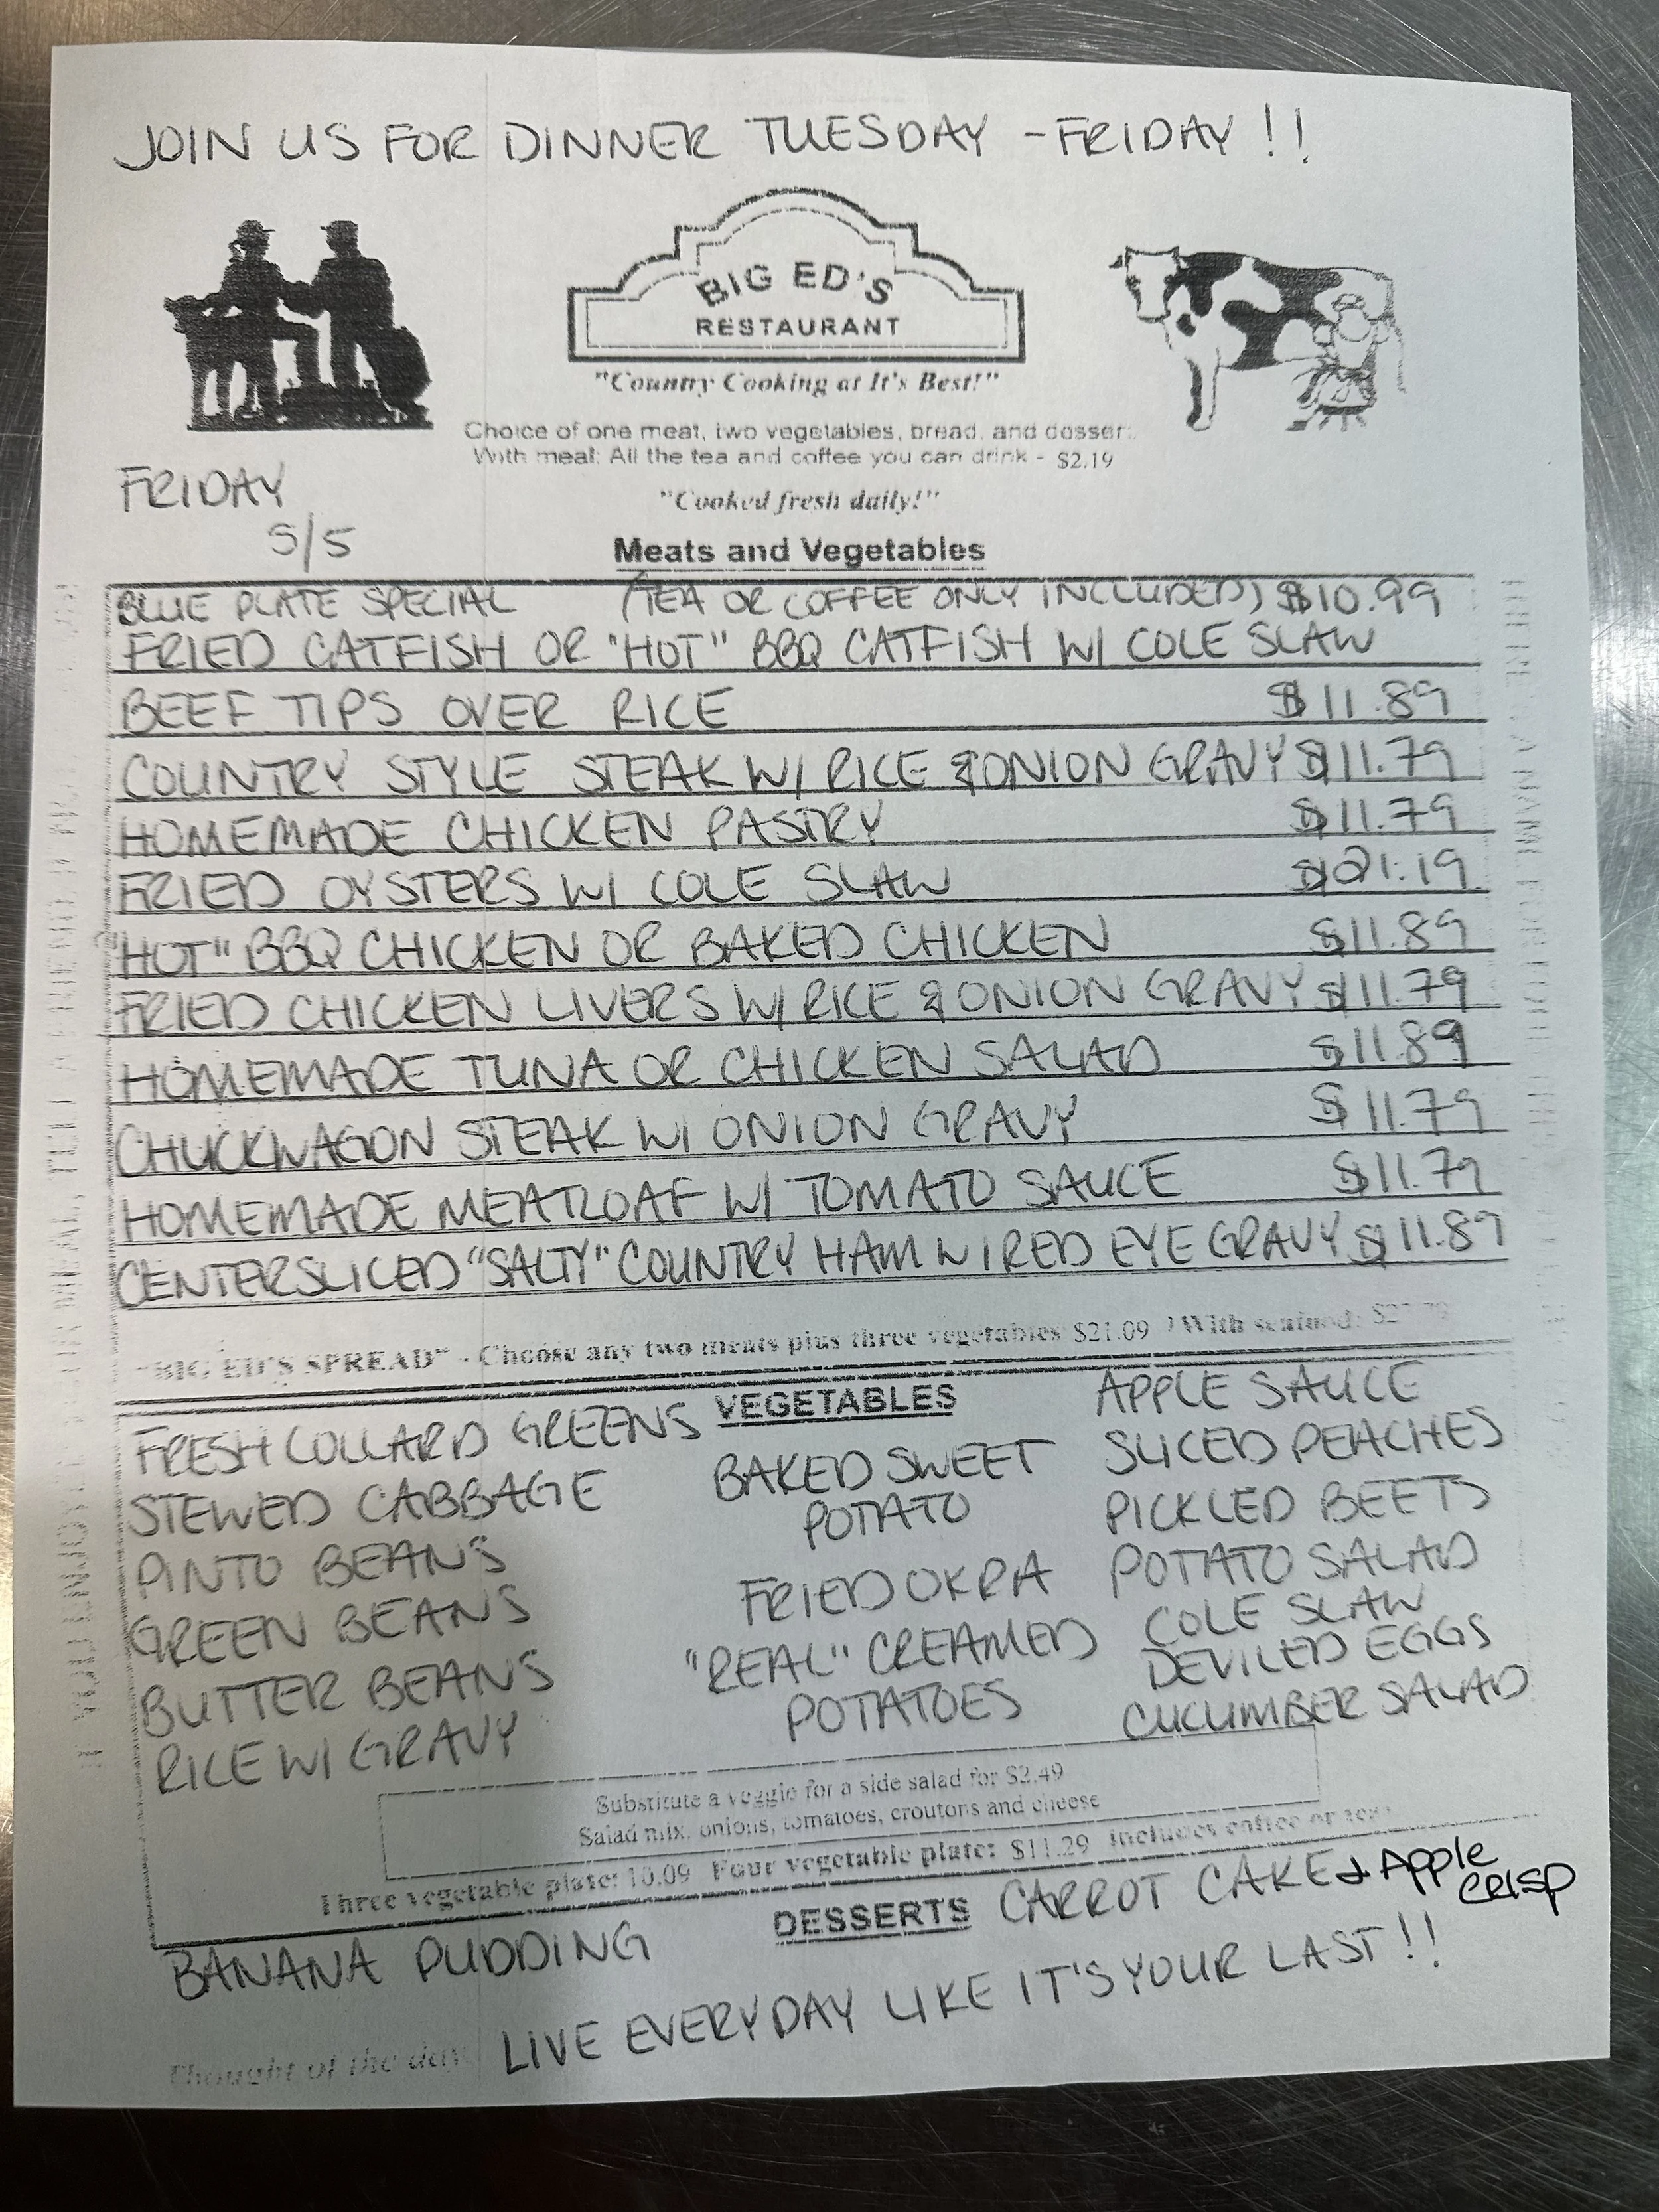 JOIN US FOR DINNER TUESDAY - FRIDAY !!
BIG ED'S
RESTAURANT
"Country Cooking at It's Best!"
Choice of one meat, two vegetables, bread, and dessert.
With meal: All the tea and coffee you can drink - $2.19
FRIDAY
5/5
"Cooked fresh daily!"
Meats and Vegetables
BLUE PLATE SPECIAL (TEA OR COFFEE ONLY INCLUDED) $10.99
FRIED CATFISH OR "HOT" BBQ CATFISH W/ COLE SLAW
BEEF TIPS OVER RICE $11.89
COUNTRY STYLE STEAK W/ RICE & ONION GRAVY $11.79
HOMEMADE CHICKEN PASTRY $11.79
FRIED OYSTERS W/ COLE SLAW $21.19
"HOT" BBQ CHICKEN OR BAKED CHICKEN $11.89
FRIED CHICKEN LIVERS W/ RICE & ONION GRAVY $11.79
HOMEMADE TUNA OR CHICKEN SALAD $11.89
CHUCKWAGON STEAK W/ ONION GRAVY $11.79
HOMEMADE MEATLOAF W/ TOMATO SAUCE $11.79
CENTERSLICED "SALTY" COUNTRY HAM W/ RED EYE GRAVY $11.89
"BIG ED'S SPREAD" - Choose any two meats plus three vegetables $21.09 / With seafood:
VEGETABLES
FRESH COLLARD GREENS
STEWED CABBAGE
PINTO BEANS
GREEN BEANS
BUTTER BEANS
RICE W/ GRAVY
BAKED SWEET
POTATO
FRIED OKRA
"REAL" CREAMED
POTATOES
APPLE SAUCE
SLICED PEACHES
PICKLED BEETS
POTATO SALAD
COLE SLAW
DEVILED EGGS
CUCUMBER SALAD
Substitute a veggie for a side salad for $2.49
Salad mix, onions, tomatoes, croutons and cheese
Three vegetable plate: 10.09 Four vegetable plate: $11.29 includes coffee or tea
DESSERTS
BANANA PUDDING
CARROT CAKE & Apple
CRISP
Thought of the day LIVE EVERYDAY LIKE IT'S YOUR LAST!!